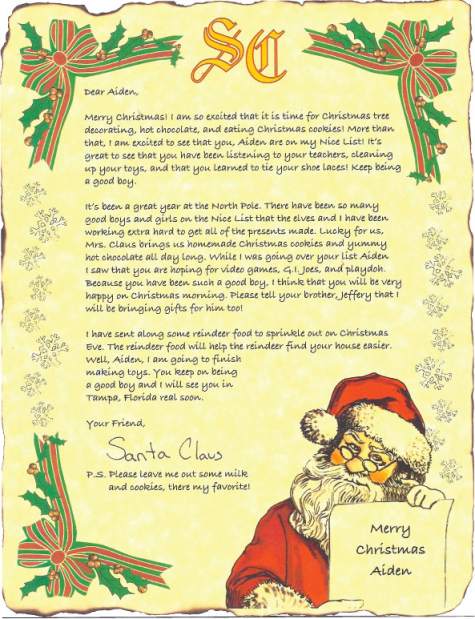 SC
Dear Aiden,
Merry Christmas! I am so excited that it is time for Christmas tree
decorating, hot chocolate, and eating Christmas cookies! More than
that, I am excited to see that you, Aiden are on my Nice List! It's
great to see that you have been listening to your teachers, cleaning
up your toys, and that you learned to tie your shoe laces! Keep being
a good boy.
It's been a great year at the North Pole. There have been so many
good boys and girls on the Nice List that the elves and I have been
working extra hard to get all of the presents made. Lucky for us,
Mrs. Claus brings us homemade Christmas cookies and yummy
hot chocolate all day long. While I was going over your list Aiden
I saw that you are hoping for video games, G.I. Joes, and playdoh.
Because you have been such a good boy, I think that you will be very
happy on Christmas morning. Please tell your brother, Jeffery that I
will be bringing gifts for him too!
I have sent along some reindeer food to sprinkle out on Christmas
Eve. The reindeer food will help the reindeer find your house easier.
Well, Aiden, I am going to finish
making toys. You keep on being
a good boy and I will see you in
Tampa, Florida real soon.
Your Friend,
Santa Claus
P.S. Please leave me out some milk
and cookies, there my favorite!
Merry
Christmas
Aiden